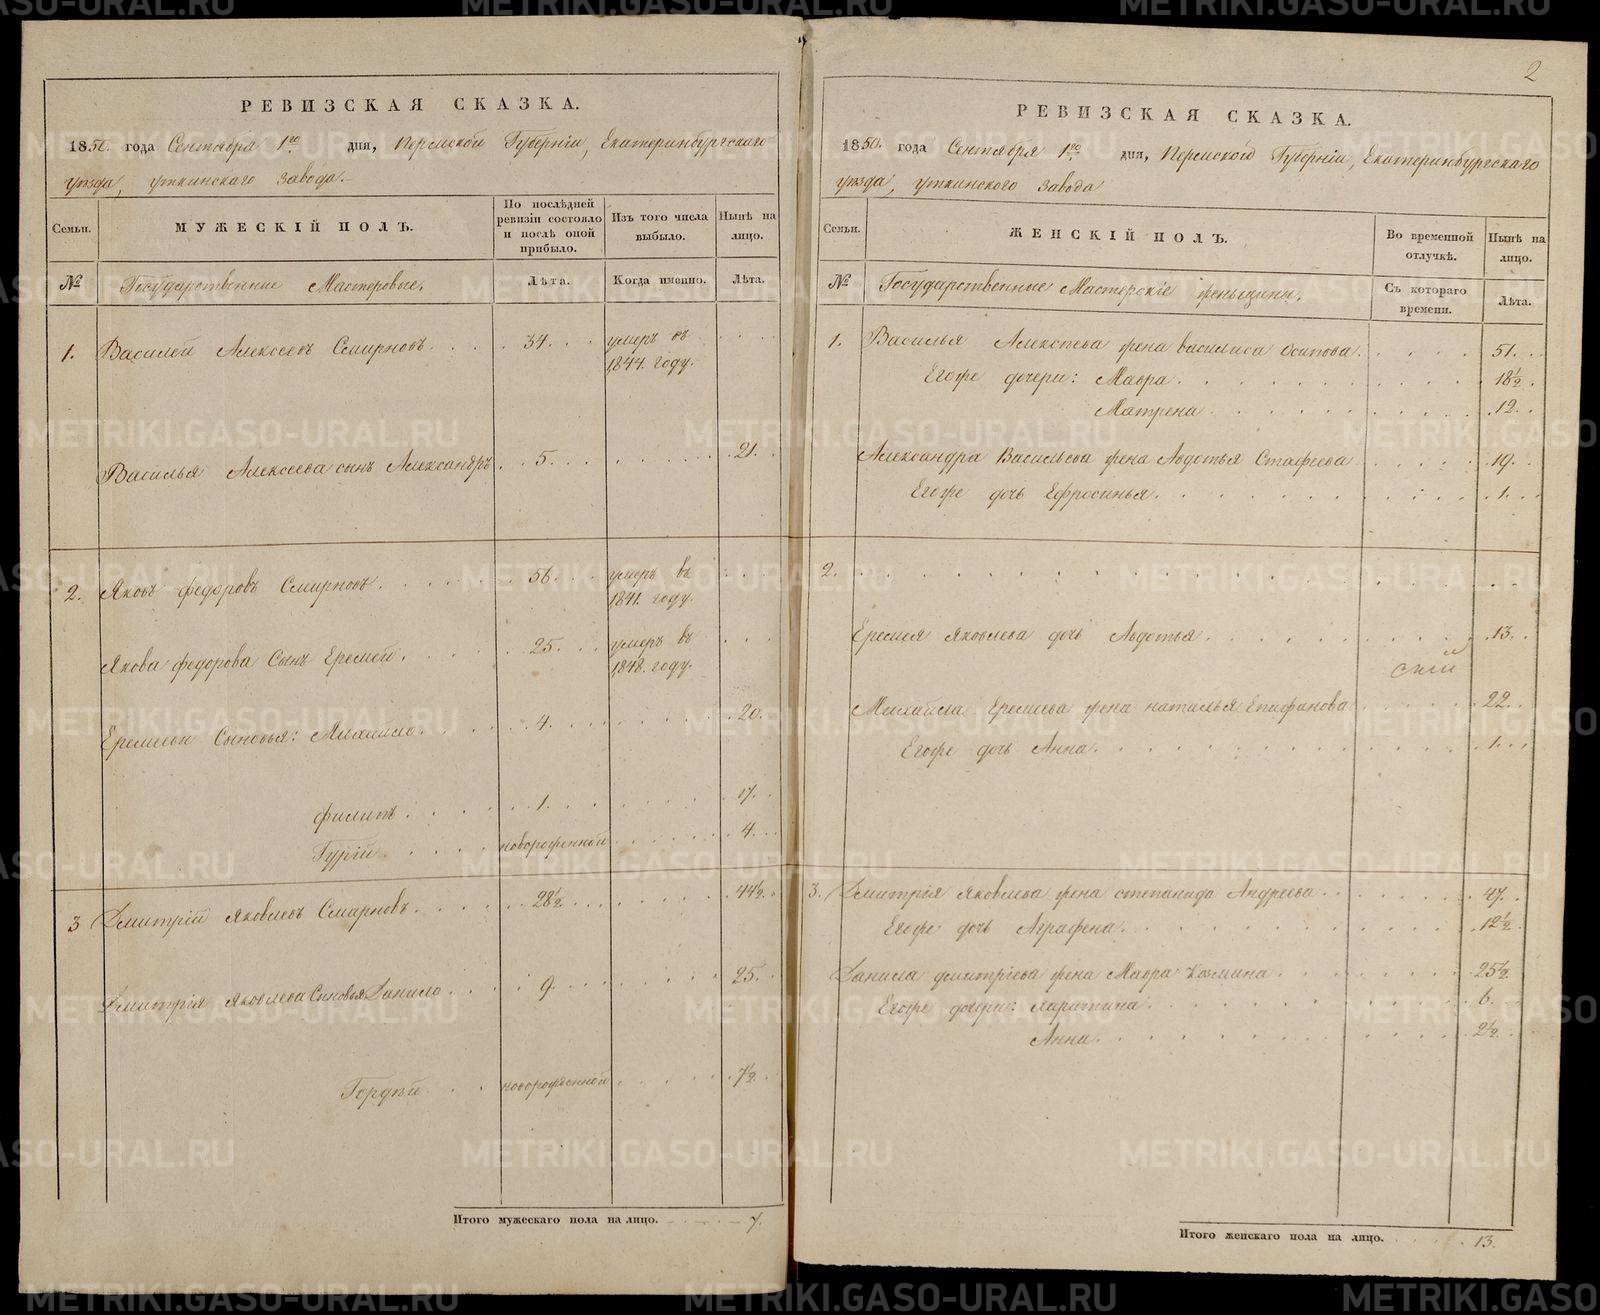 РЕВИЗСКАЯ СКАЗКА.
1850. года Сентября 1го дня, Пермской Губерніи, Екатеринбургскаго
уѣзда, уткинскаго завода.
Семьи. МУЖЕСКІЙ ПОЛЪ. По послѣдней ревизіи состояло и послѣ оной прибыло. Изъ того числа выбыло. Нынѣ на лицо.
№ Государственные Мастеровые. Лѣта. Когда именно. Лѣта.
1. Василей Алексѣевъ Смирновъ. 34. умеръ въ 1844. году.
Василья Алексѣева сынъ Александръ 5. 21.
2. Яковъ федоровъ Смирновъ. 56. умеръ въ 1841. году.
Якова федорова Сынъ Еремей. 25. умеръ въ 1848. году.
Еремеевы Сыновья: Михайло. 4. 20.
филипъ. 1. 17.
Гурій новорожденной 4.
3 Дмитрій Яковлевъ Смирновъ. 28½. 44½.
Дмитрія Яковлева Сыновья Данило 9. 25.
Гордѣй. новорожденной 7½.
Итого мужескаго пола на лицо. 7.
2
РЕВИЗСКАЯ СКАЗКА.
1850. года Сентября 1го дня, Пермской Губерніи, Екатеринбургскаго
уѣзда, уткинского завода
Семьи. ЖЕНСКІЙ ПОЛЪ. Во временной отлучкѣ. Нынѣ на лицо.
№ Государственные Мастерскіе женьщины. Съ котораго времени. Лѣта.
1. Василья Алексѣева жена василиса Осипова. 51.
Егоже дочери: Мавра. 18½.
Матрена. 12.
Александра Васильева жена Авдотья Стафеева 19.
Егоже дочь Ефросинья. 1.
2.
Еремея Яковлева дочь Авдотья 13.
скій
Михайла Еремеева жена наталья Епифанова 22.
Егоже дочь Анна. 1.
3. Дмитрія Яковлева жена степанида Андреева 47.
Егоже дочь Аграфена. 12½.
Данила дмитріева жена Мавра Козмина 25½.
Егоже дочери: харитина 6.
Анна. 2½.
Итого женскаго пола на лицо. 13.
METRIKI.GASO-URAL.RU